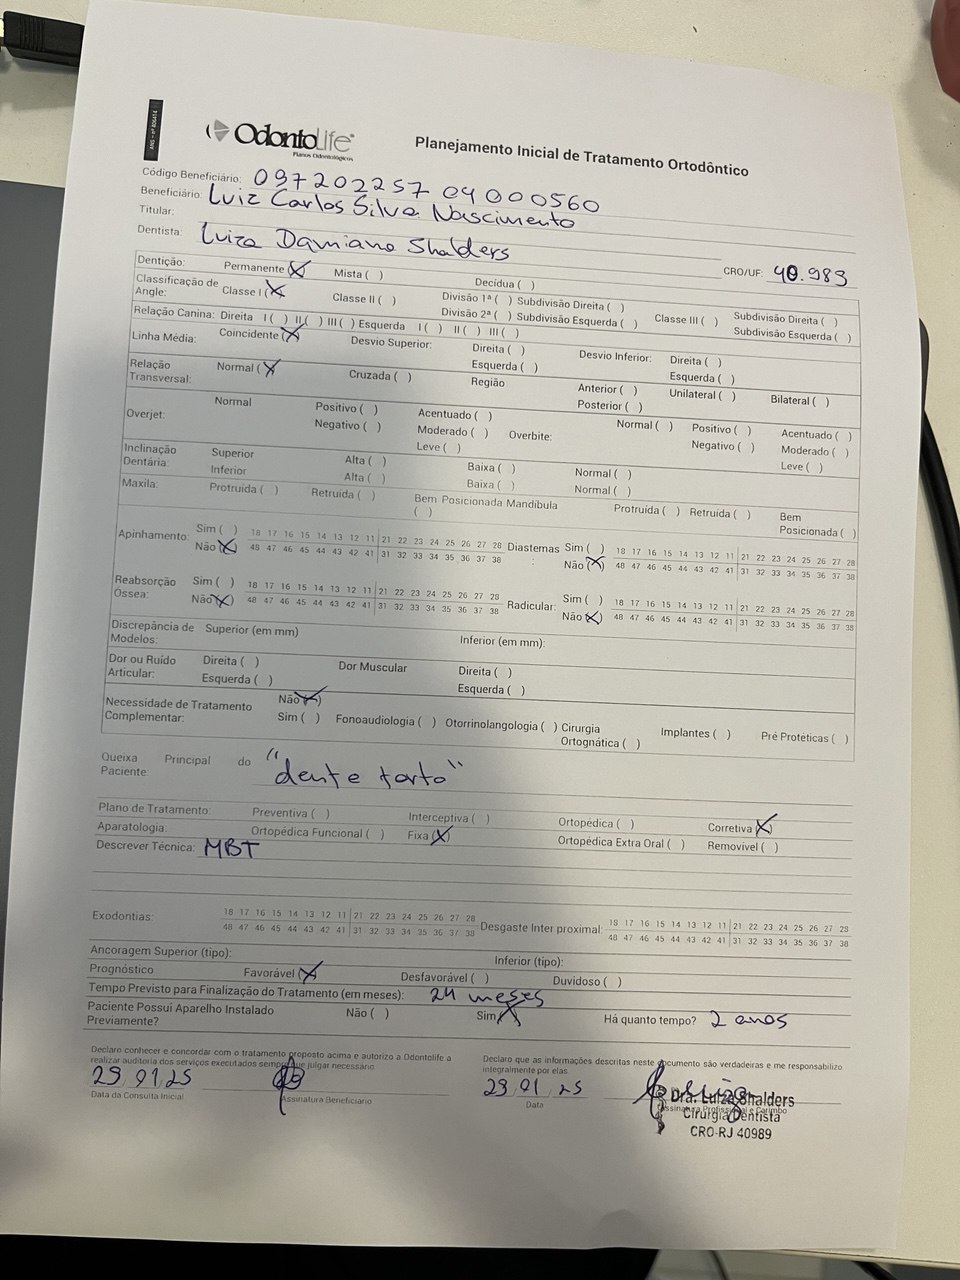 ANS - nº 406414
OdontoLife
Planos Odontológicos
Planejamento Inicial de Tratamento Ortodôntico
Código Beneficiário: 097202257 04000560
Beneficiário: Luiz Carlos Silva Nascimento
Titular:
Dentista: Luiza Damiano Shalders CRO/UF: 40.989
Dentição: Permanente (X) Mista ( ) Decídua ( )
Classificação de Angle: Classe I (X) Classe II ( ) Divisão 1ª ( ) Subdivisão Direita ( ) Classe III ( ) Subdivisão Direita ( )
Divisão 2ª ( ) Subdivisão Esquerda ( ) Subdivisão Esquerda ( )
Relação Canina: Direita I ( ) II ( ) III ( ) Esquerda I ( ) II ( ) III ( )
Linha Média: Coincidente (X) Desvio Superior: Direita ( ) Desvio Inferior: Direita ( )
Esquerda ( ) Esquerda ( )
Relação Transversal: Normal (X) Cruzada ( ) Região Anterior ( ) Unilateral ( ) Bilateral ( )
Posterior ( )
Overjet: Normal Positivo ( ) Acentuado ( ) Overbite: Normal ( ) Positivo ( ) Acentuado ( )
Negativo ( ) Moderado ( ) Negativo ( ) Moderado ( )
Leve ( ) Leve ( )
Inclinação Dentária: Superior Alta ( ) Baixa ( ) Normal ( )
Inferior Alta ( ) Baixa ( ) Normal ( )
Maxila: Protruida ( ) Retruída ( ) Bem Posicionada ( ) Mandíbula Protruída ( ) Retruída ( ) Bem Posicionada ( )
Apinhamento: Sim ( ) 18 17 16 15 14 13 12 11 21 22 23 24 25 26 27 28 Diastemas: Sim ( ) 18 17 16 15 14 13 12 11 21 22 23 24 25 26 27 28
Não (X) 48 47 46 45 44 43 42 41 31 32 33 34 35 36 37 38 Não (X) 48 47 46 45 44 43 42 41 31 32 33 34 35 36 37 38
Reabsorção Óssea: Sim ( ) 18 17 16 15 14 13 12 11 21 22 23 24 25 26 27 28 Radicular: Sim ( ) 18 17 16 15 14 13 12 11 21 22 23 24 25 26 27 28
Não (X) 48 47 46 45 44 43 42 41 31 32 33 34 35 36 37 38 Não (X) 48 47 46 45 44 43 42 41 31 32 33 34 35 36 37 38
Discrepância de Modelos: Superior (em mm) Inferior (em mm):
Dor ou Ruído Articular: Direita ( ) Dor Muscular Direita ( )
Esquerda ( ) Esquerda ( )
Necessidade de Tratamento Complementar: Não (X)
Sim ( ) Fonoaudiologia ( ) Otorrinolangologia ( ) Cirurgia Ortognática ( ) Implantes ( ) Pré Proteticas ( )
Queixa Principal do Paciente "dente torto"
Plano de Tratamento: Preventiva ( ) Interceptiva ( ) Ortopédica ( ) Corretiva (X)
Aparatologia: Ortopédica Funcional ( ) Fixa (X) Ortopédica Extra Oral ( ) Removível ( )
Descrever Técnica: MBT
Exodontias: 18 17 16 15 14 13 12 11 21 22 23 24 25 26 27 28 Desgaste Inter proximal: 18 17 16 15 14 13 12 11 21 22 23 24 25 26 27 28
48 47 46 45 44 43 42 41 31 32 33 34 35 36 37 38 48 47 46 45 44 43 42 41 31 32 33 34 35 36 37 38
Ancoragem Superior (tipo): Inferior (tipo):
Prognóstico Favorável (X) Desfavorável ( ) Duvidoso ( )
Tempo Previsto para Finalização do Tratamento (em meses): 24 meses
Paciente Possui Aparelho Instalado Previamente? Não ( ) Sim (X) Há quanto tempo? 2 anos
Declaro conhecer e concordar com o tratamento proposto acima e autorizo a Odontolife a
realizar auditoria dos serviços executados sempre que julgar necessário
Declaro que as informações descritas neste documento são verdadeiras e me responsabilizo
integralmente por elas
29/01/25
Data da Consulta Inicial
Assinatura Beneficiário
29/01/25
Data
Assinatura Profissional e Carimbo
Dra. Luiza Shalders
Cirurgiã Dentista
CRO-RJ 40989